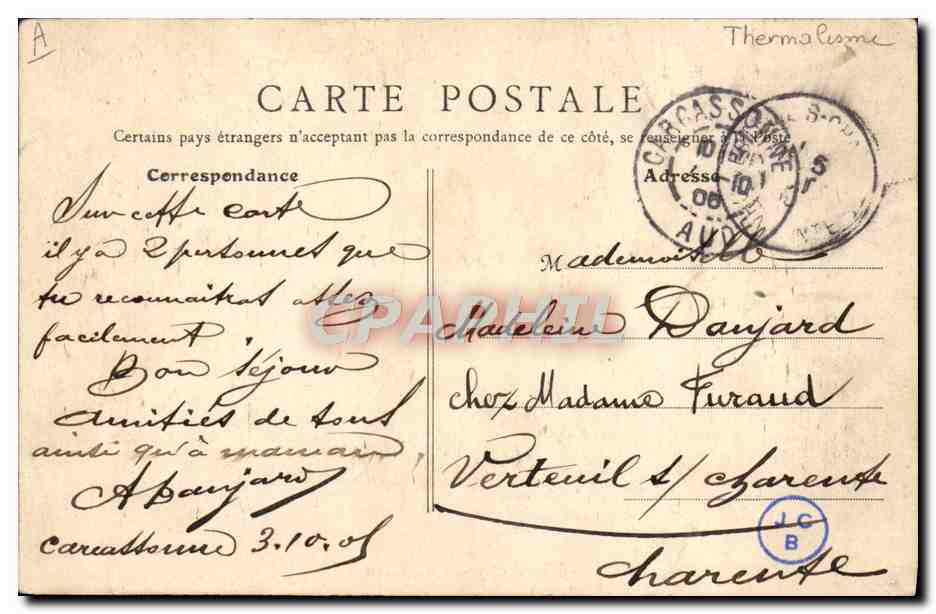 A
Thermalisme
CARTE POSTALE
Certains pays étrangers n'acceptant pas la correspondance de ce côté, se renseigner à la Poste
Correspondance
Adresse
CARCASSONNE
10
06
AUDE
Sur cette carte
il y a 2 personnes que
tu reconnaitras assez
facilement.
Bon séjour
Amitiés de tous
ainsi qu'à maman
A Danjard
Carcassonne 3.10.05
Mademoiselle
Madeleine Danjard
chez Madame Furaud
Verteuil s/ Charente
Charente
J C
B
CPAPHIL